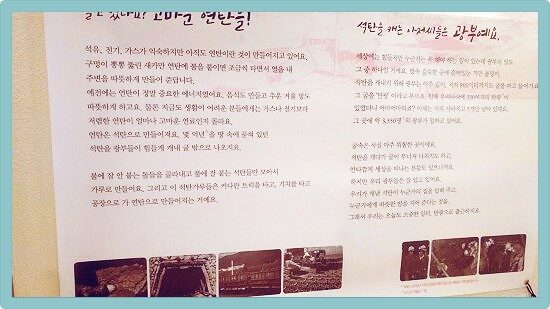 알고 있나요? 고마운 연탄을!
석유, 전기, 가스가 익숙하지만 아직도 연탄이란 것이 만들어지고 있어요.
구멍이 뽕뽕 뚫린 새까만 연탄에 불을 붙이면 조금씩 타면서 열을 내
주변을 따뜻하게 만들어 준답니다.
예전에는 연탄이 정말 중요한 에너지였어요. 음식도 만들고 추운 겨울 방도
따뜻하게 하고요. 물론 지금도 생활이 어려운 분들에게는 가스나 전기보다
저렴한 연탄이 얼마나 고마운 연료인지 몰라요.
연탄은 석탄으로 만들어지죠. 몇 억년 땅 속에 묻혀 있던
석탄을 광부들이 힘들게 캐내 굴 밖으로 나오지요.
불에 잘 안 붙는 돌들을 골라내고 불에 잘 붙는 석탄들만 모아서
가루로 만들어요. 그리고 이 석탄가루들은 커다란 트럭을 타고, 기차를 타고
공장으로 가 연탄으로 만들어지는 거예요.
석탄을 캐는 아저씨들은 광부예요.
세상에는 힘들지만 누군가는 꼭 해야 하는 일이 있는데 광부의 일도
그 중 하나일 거예요. 땅속 깊숙한 곳에 들어있는
석탄을 캐내기 위해 광부는 아주 깊이,
그 굴을 '탄광'이라고 부르죠. 한때 우리나라에 350여개의 탄광이
있었다니 어마어마하죠? 이제는 거의 사라지고
그 곳에 약 3,350명의 광부가 일하고 있어요.
굴속은 사실 아주 위험한 곳이에요.
석탄을 캐다가 굴이 무너져 다치기도 하고,
안타깝게 세상을 떠나는 분들도 있었지요.
하지만 우리 광부들은 잘 알고 있어요.
우리가 캐낸 석탄이 누군가의 집을 밝혀 주고,
누군가에게 따뜻한 밥을 지어 준다는 것을.
그래서 우리는 오늘도 소중한 일터, 탄광으로 출근하지요.